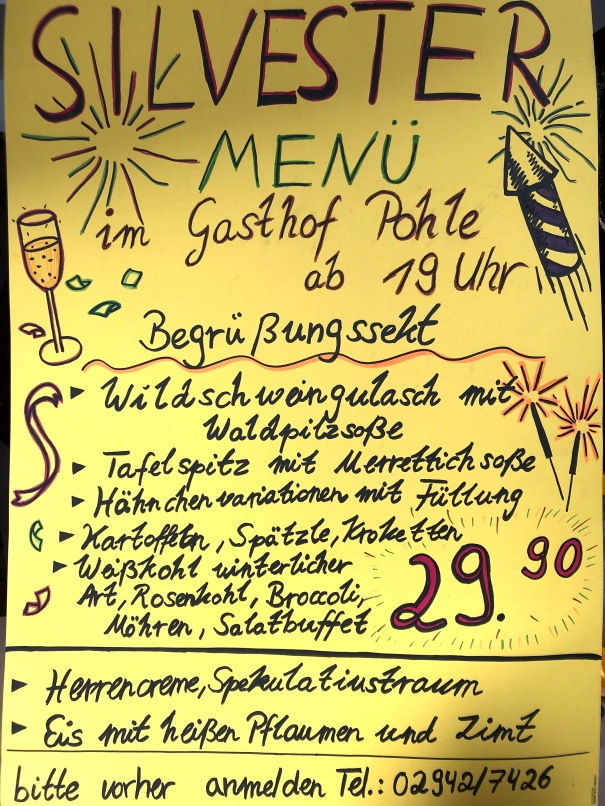 SILVESTER
MENÜ
im Gasthof Pohle
ab 19 Uhr
Begrüßungssekt
► Wildschweingulasch mit
Waldpitzsoße
► Tafelspitz mit Merrettichsoße
► Hähnchenvariationen mit Füllung
► Kartoffeln, Spätzle, Kroketten
► Weißkohl winterlicher
Art, Rosenkohl, Broccoli,
Möhren, Salatbuffet
29.90
► Herrencreme, Spekulatiustraum
► Eis mit heißen Pflaumen und Zimt
bitte vorher anmelden Tel.: 02942/7426